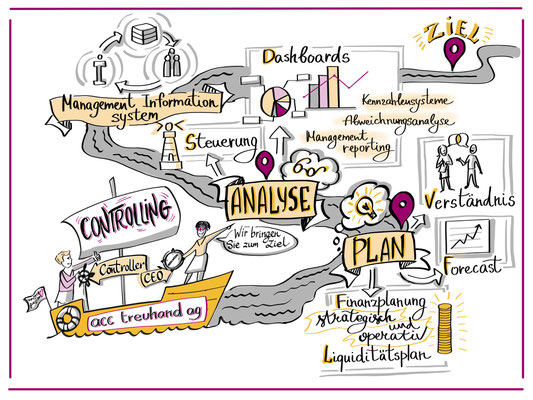 ZIEL
Dashboards
Kennzahlensysteme
Abweichungsanalyse
Management
reporting
Management Information
system
Steuerung
ANALYSE
PLAN
Verständnis
Forecast
Finanzplanung
strategisch
und
operativ
Liquiditätsplan
CONTROLLING
Wir bringen
Sie zum Ziel
Controller
CEO
acc treuhand ag